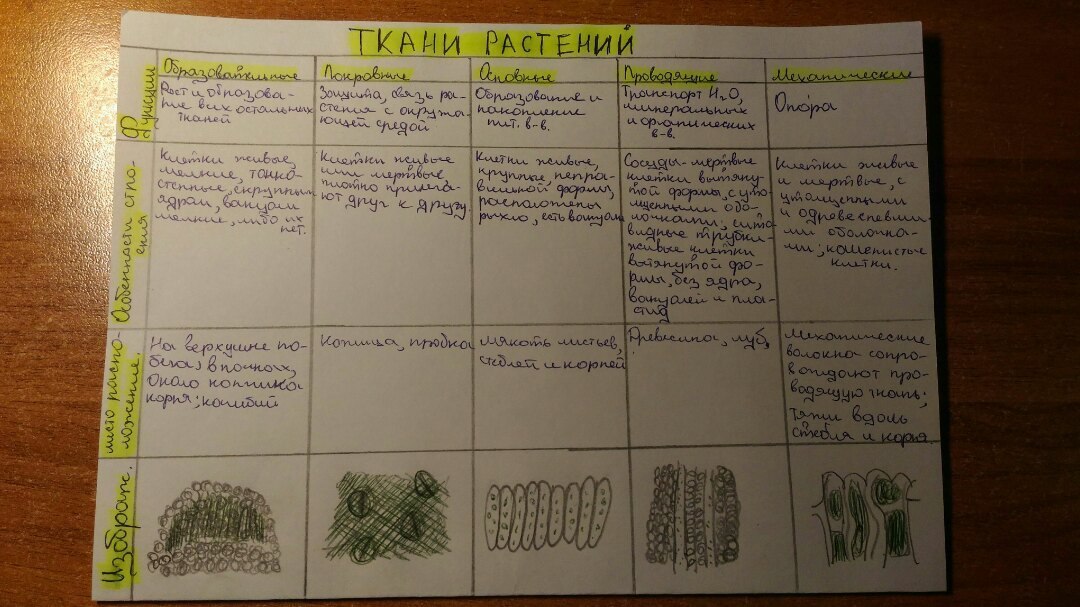 ТКАНИ РАСТЕНИЙ
Образовательные
Покровные
Основные
Проводящие
Механические
Функции
Рост и образова-
ние всех остальных
тканей
Защита, связь ра-
стения с окружа-
ющей средой
Образование и
накопление
пит. в-в.
Транспорт H₂O,
минеральных
и органических
в-в.
Опора
Особенности стро-
ения
Клетки живые,
мелкие, тонко-
стенные, с крупным
ядром, вакуоли
мелкие, либо их
нет.
Клетки живые
или мертвые,
плотно прилега-
ют друг к другу
Клетки живые,
крупные, непра-
вильной формы,
расположены
рыхло, есть вакуоли
Сосуды-мертвые
клетки вытяну-
той формы, с уто-
лщенными обо-
лочками; сито-
видные трубки-
живые клетки
вытянутой фо-
рмы, без ядра,
вакуолей и пла-
стид
Клетки живые
и мертвые, с
утолщенными
и одревесневши-
ми оболочка-
ми; каменистые
клетки.
место распо-
ложение.
На верхушке по-
бега, в почках,
Около кончика
корня; камбий
Кожица, пробка
мякоть листьев,
стеблей и корней
Древесина, луб,
Механические
волокна сопро-
вождают про-
водящую ткань;
Тяжи вдоль
стебля и корня.
Изображ.